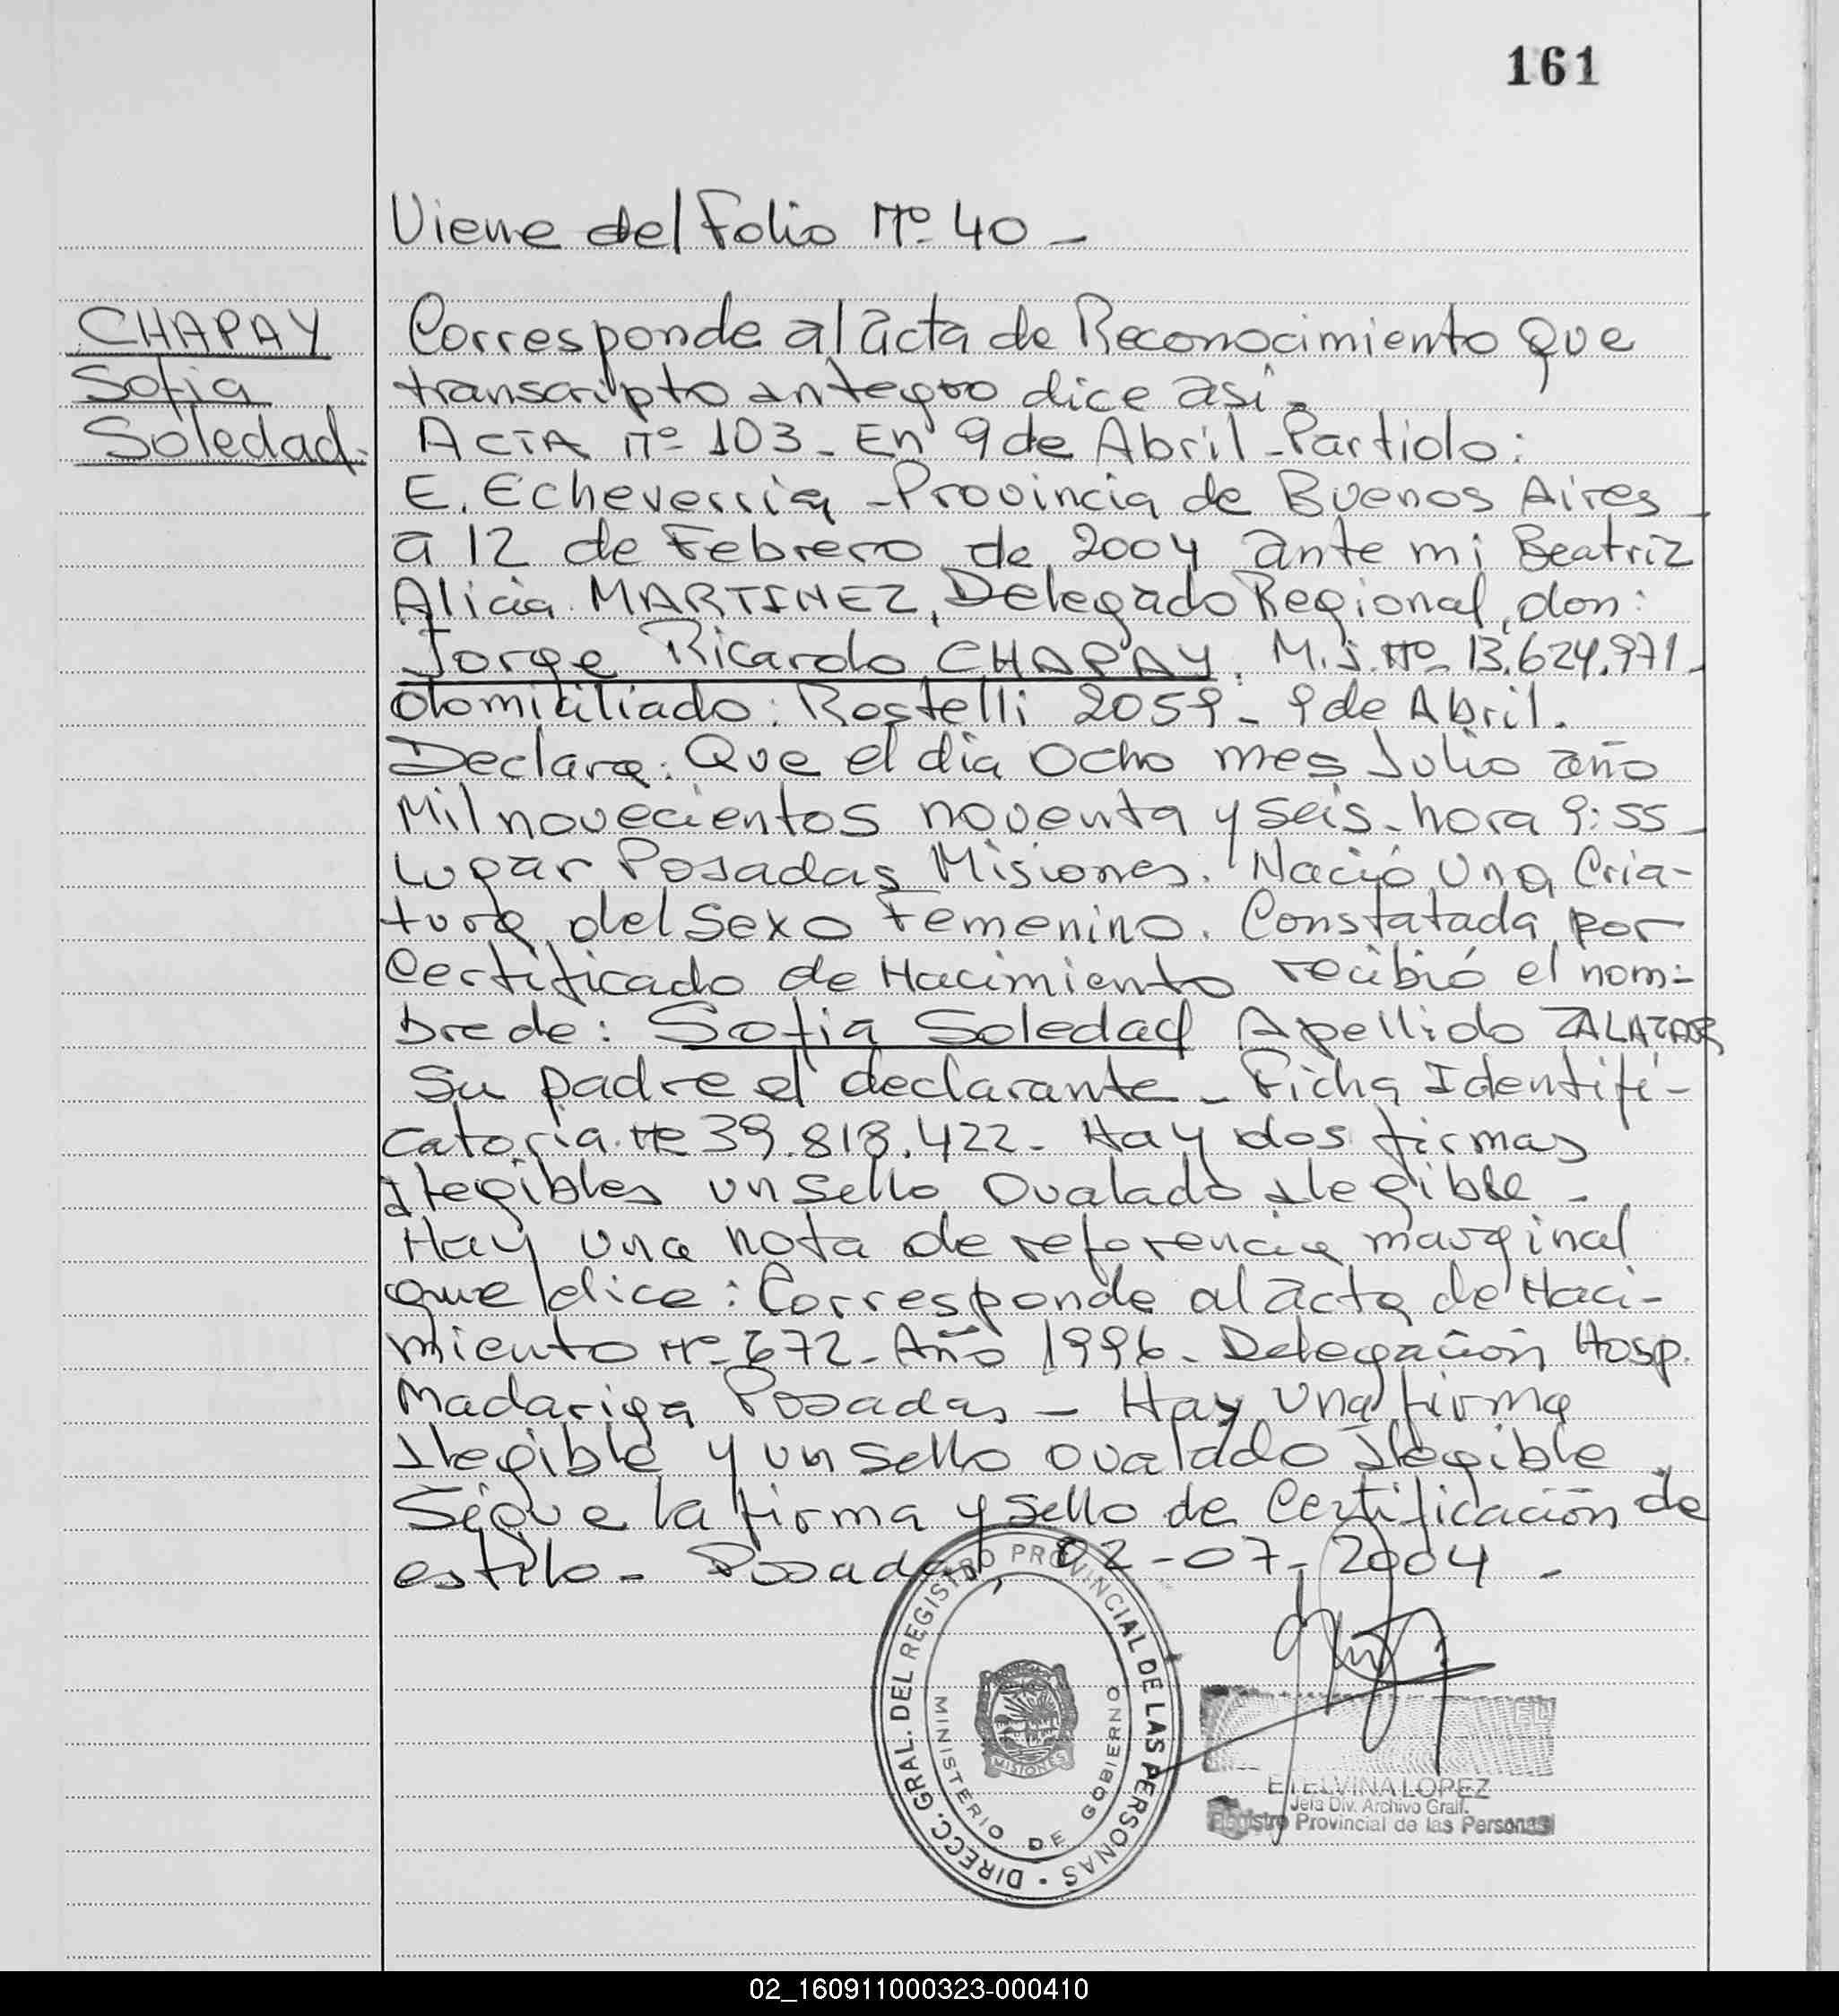 161
Viene del Folio Nº 40 -
CHAPAY
Sofia
Soledad.
Corresponde al acta de Reconocimiento que
transcripto integro dice asi -
ACTA Nº 103 - En 9 de Abril - Partido:
E. Echeverria - Provincia de Buenos Aires -
a 12 de Febrero de 2004 ante mi Beatriz
Alicia MARTINEZ, Delegado Regional, don:
Jorge Ricardo CHAPAY. M.I. Nº 13.624.971 -
domiciliado: Rostelli 2059 - 9 de Abril.
Declara: Que el dia Ocho mes Julio año
Mil novecientos noventa y seis - hora 9:55 -
Lugar Posadas Misiones. Nació una Cria-
tura del sexo Femenino. Constatada por
Certificado de Nacimiento recibió el nom-
bre de: Sofia Soledad Apellido ZALAZAR
Su padre el declarante - Ficha Identifi-
catoria Nº 39.818.422 - Hay dos firmas
Ilegibles un sello Ovalado Ilegible -
Hay una nota de referencia marginal
que dice: Corresponde al acta de Naci-
miento Nº 672 - Año 1996 - Delegación Hosp.
Madariaga Posadas - Hay una firma
Ilegible y un sello ovalado Ilegible.
Sigue la firma y sello de Certificación de
estilo - Posadas, 02-07-2004 -
DIRECC. GRAL. DEL REGISTRO PROVINCIAL DE LAS PERSONAS
MINISTERIO DE GOBIERNO
MISIONES
ETELVINA LOPEZ
Jefa Div. Archivo Gral.
Registro Provincial de las Personas
02_160911000323-000410